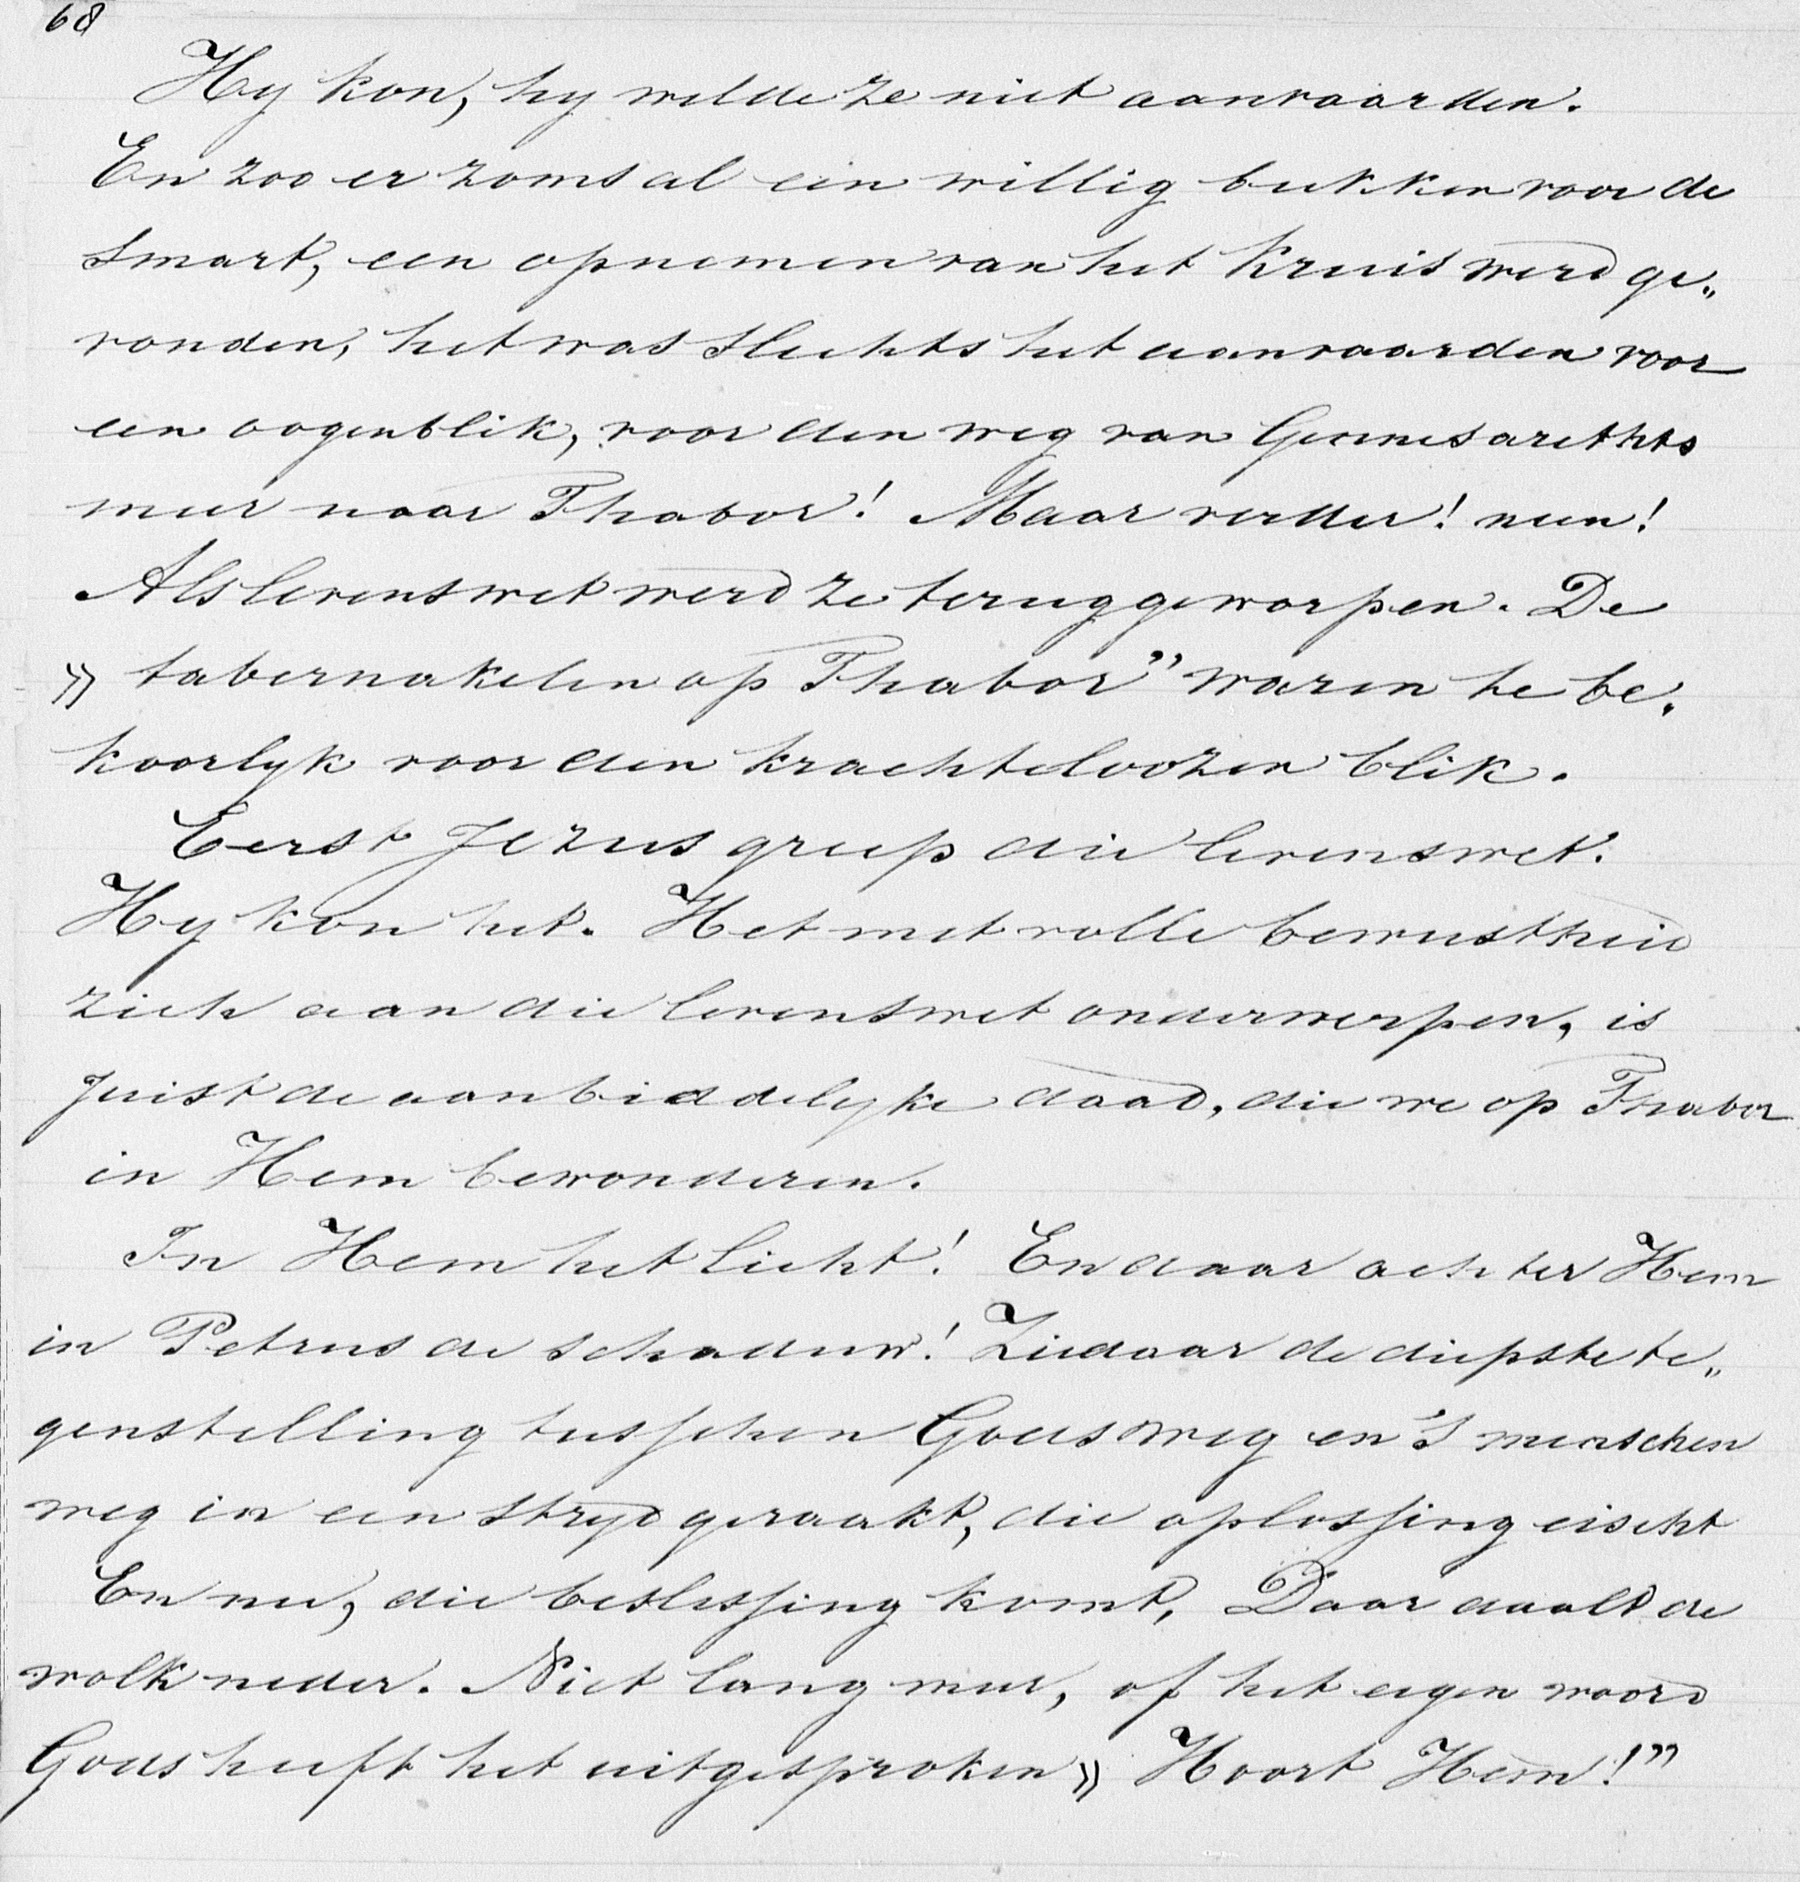 68
Hy kon, hy wilde ze niet aanvaarden.
En zoo er zoms al een willig bukken voor de
smart, een opnemen van het Kruis werd ge„
vonden, het was slechts het aanvaarden voor
een oogenblik, voor den weg van Gennesarethts
meer naar Thabor! Maar verder! neen!
Als levenswet werd ze teruggeworpen. De
» tabernakelen op Thabor” waren te be„
koorlyk voor den krachteloozen blik.
Eerst Jezus greep die levenswet.
Hy kon het. Het met volle bewustheid
zich aan die levenswet onderwerpen, is
juist de aanbiddelyke daad, die we op Thabor
in Hem bewonderen.
In Hem het licht! En daar achter Hem
in Petrus de schaduw! Ziedaar de diepste te„
genstelling tusschen Gods weg en 's menschen
weg in een stryd geraakt, die oplossing eischt
En nu, die beslissing komt, Daar daalt de
wolk neder. Niet lang meer, of het eigen woord
Gods heeft het uitgesproken » Hoort Hem!”